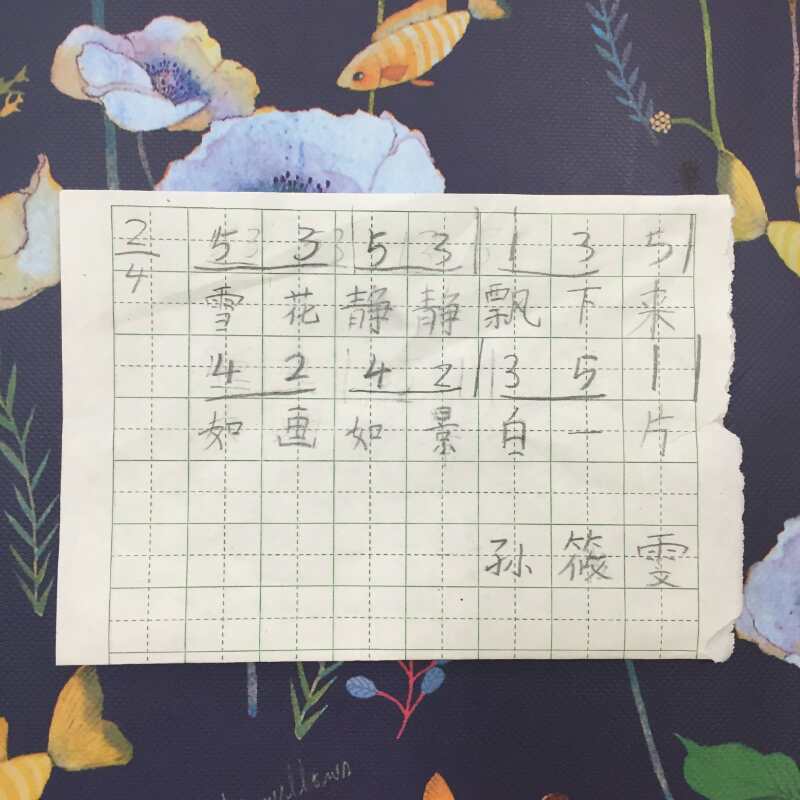 2/4 5 3 5 3 | 1 3 5 |
雪花静静飘下来
4 2 4 2 | 3 5 1 |
如画如景白一片
孙筱雯